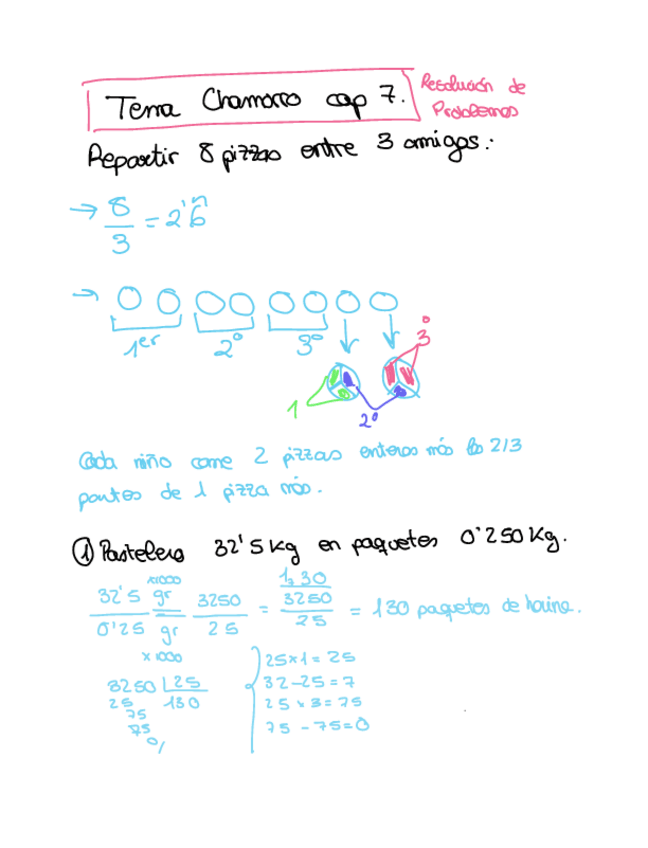 Tema Chamorro cap 7. Resolución de Problemas
Repartir 8 pizzas entre 3 amigos:
→ 8/3 = 2'6̂
→ 1er 2º 3º
3º
1 2º
Cada niño come 2 pizzas enteras más las 2/3
partes de 1 pizza más.
① Pastelero 32'5 Kg en paquetes 0'250 Kg.
x1000 1,30
32'5 gr / 0'25 gr = 3250 / 25 = 3250 / 25 = 130 paquetes de harina.
x1000
3250 | 25 25x1 = 25
25 130 32-25 = 7
75 25 x 3 = 75
75 75 - 75 = 0
0/